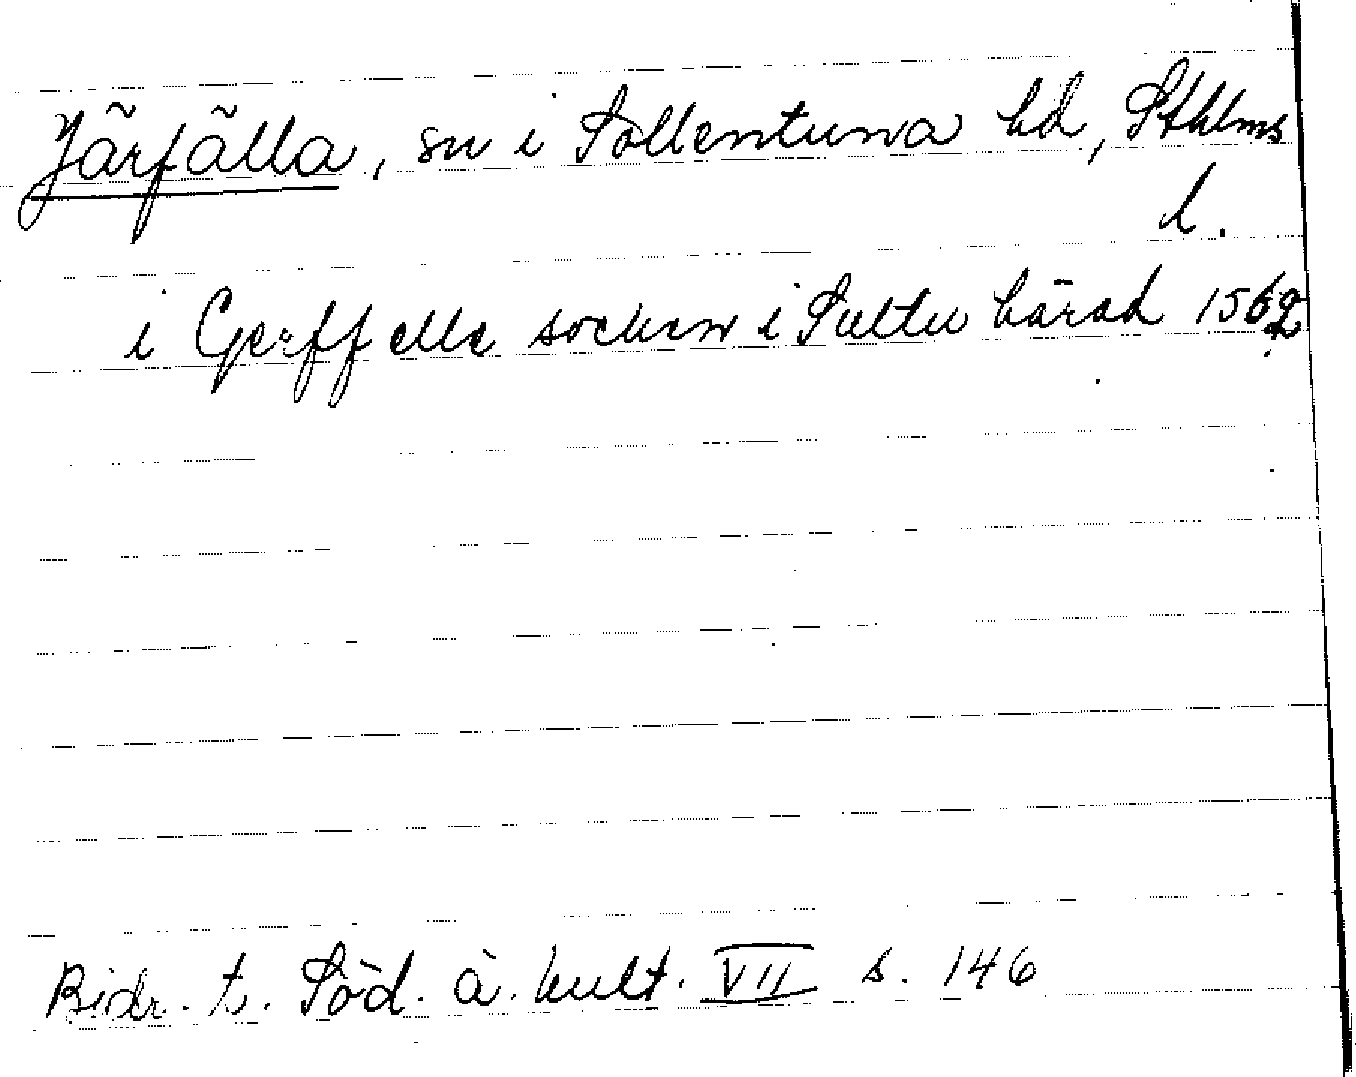 Järfälla, sn i Sollentuna hd, Sthlms
l.
i Gerffelle socken i Sultu härad 1562
Bidr. t. Söd. ä. kult. VII s. 146